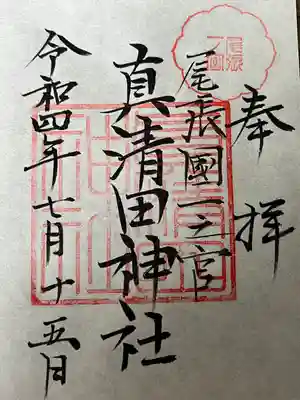 奉拝
尾張國一之宮
真清田神社
令和四年七月十五日